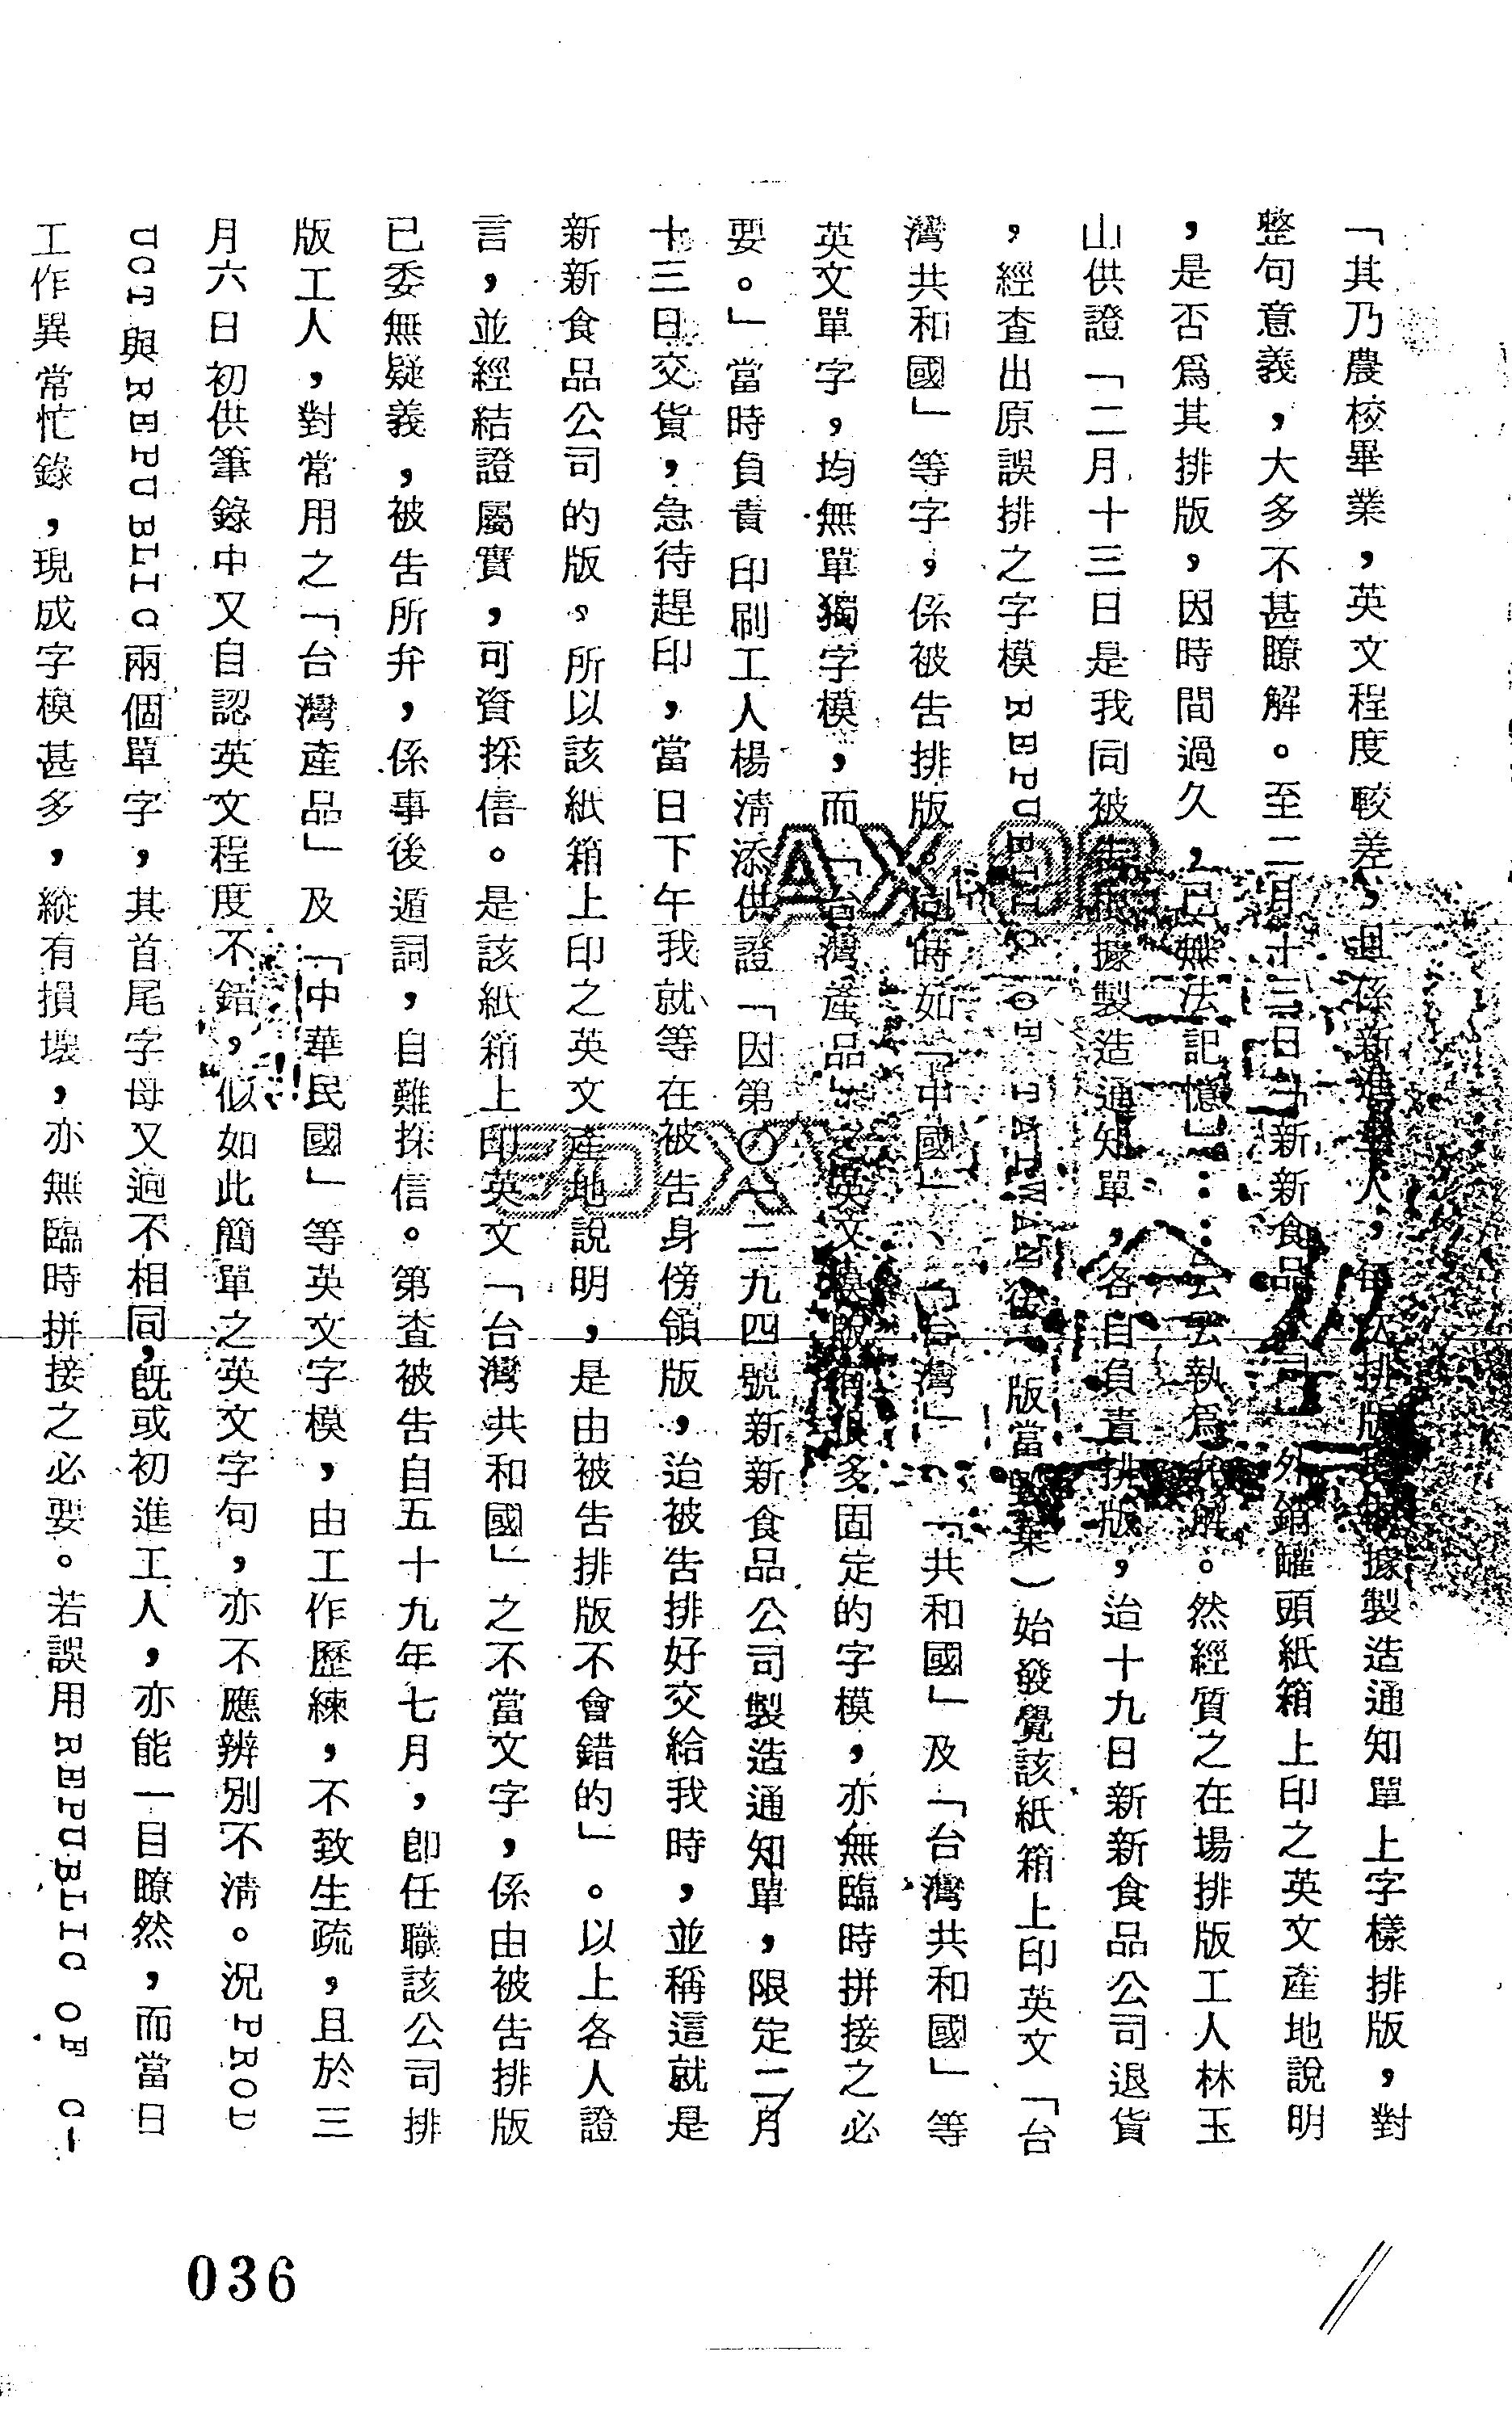 「其乃農校畢業，英文程度較差，且係新進工人，每次排版據製造通知單上字樣排版，對
整句意義，大多不甚瞭解。至二月十三日新新食品公司外銷罐頭紙箱上印之英文產地說明
，是否為其排版，因時間過久，已無法記憶」……云云執為辯解。然經質之在場排版工人林玉
山供證「二月十三日是我同被告根據製造通知單，各自負責排版，迨十九日新新食品公司退貨
，經查出原誤排之字模REPUBLIC OF TAIWAN 版當 案)始發覺該紙箱上印英文「台
灣共和國」等字，係被告排版。同時如「中國」、「台灣」、「共和國」及「台灣共和國」等
英文單字，均無單獨字模，而「台灣產品」之英文模版有很多固定的字模，亦無臨時拼接之必
要。」當時負責印刷工人楊清添供證「因第〇一二九四號新新食品公司製造通知單，限定二月
十三日交貨，急待趕印，當日下午我就等在被告身傍領版，迨被告排好交給我時，並稱這就是
新新食品公司的版，所以該紙箱上印之英文產地說明，是由被告排版不會錯的」。以上各人證
言，並經結證屬實，可資採信。是該紙箱上印英文「台灣共和國」之不當文字，係由被告排版
已委無疑義，被告所弁，係事後遁詞，自難採信。第查被告自五十九年七月，即任職該公司排
版工人，對常用之「台灣產品」及「中華民國」等英文字模，由工作歷練，不致生疏，且於三
月六日初供筆錄中又自認英文程度不錯，似如此簡單之英文字句，亦不應辨別不清。況PROD
UCT與REPUBLIC兩個單字，其首尾字母又迥不相同，既或初進工人，亦能一目瞭然，而當日
工作異常忙錄，現成字模甚多，縱有損壞，亦無臨時拼接之必要。若誤用REPUBLIC OF C-
036